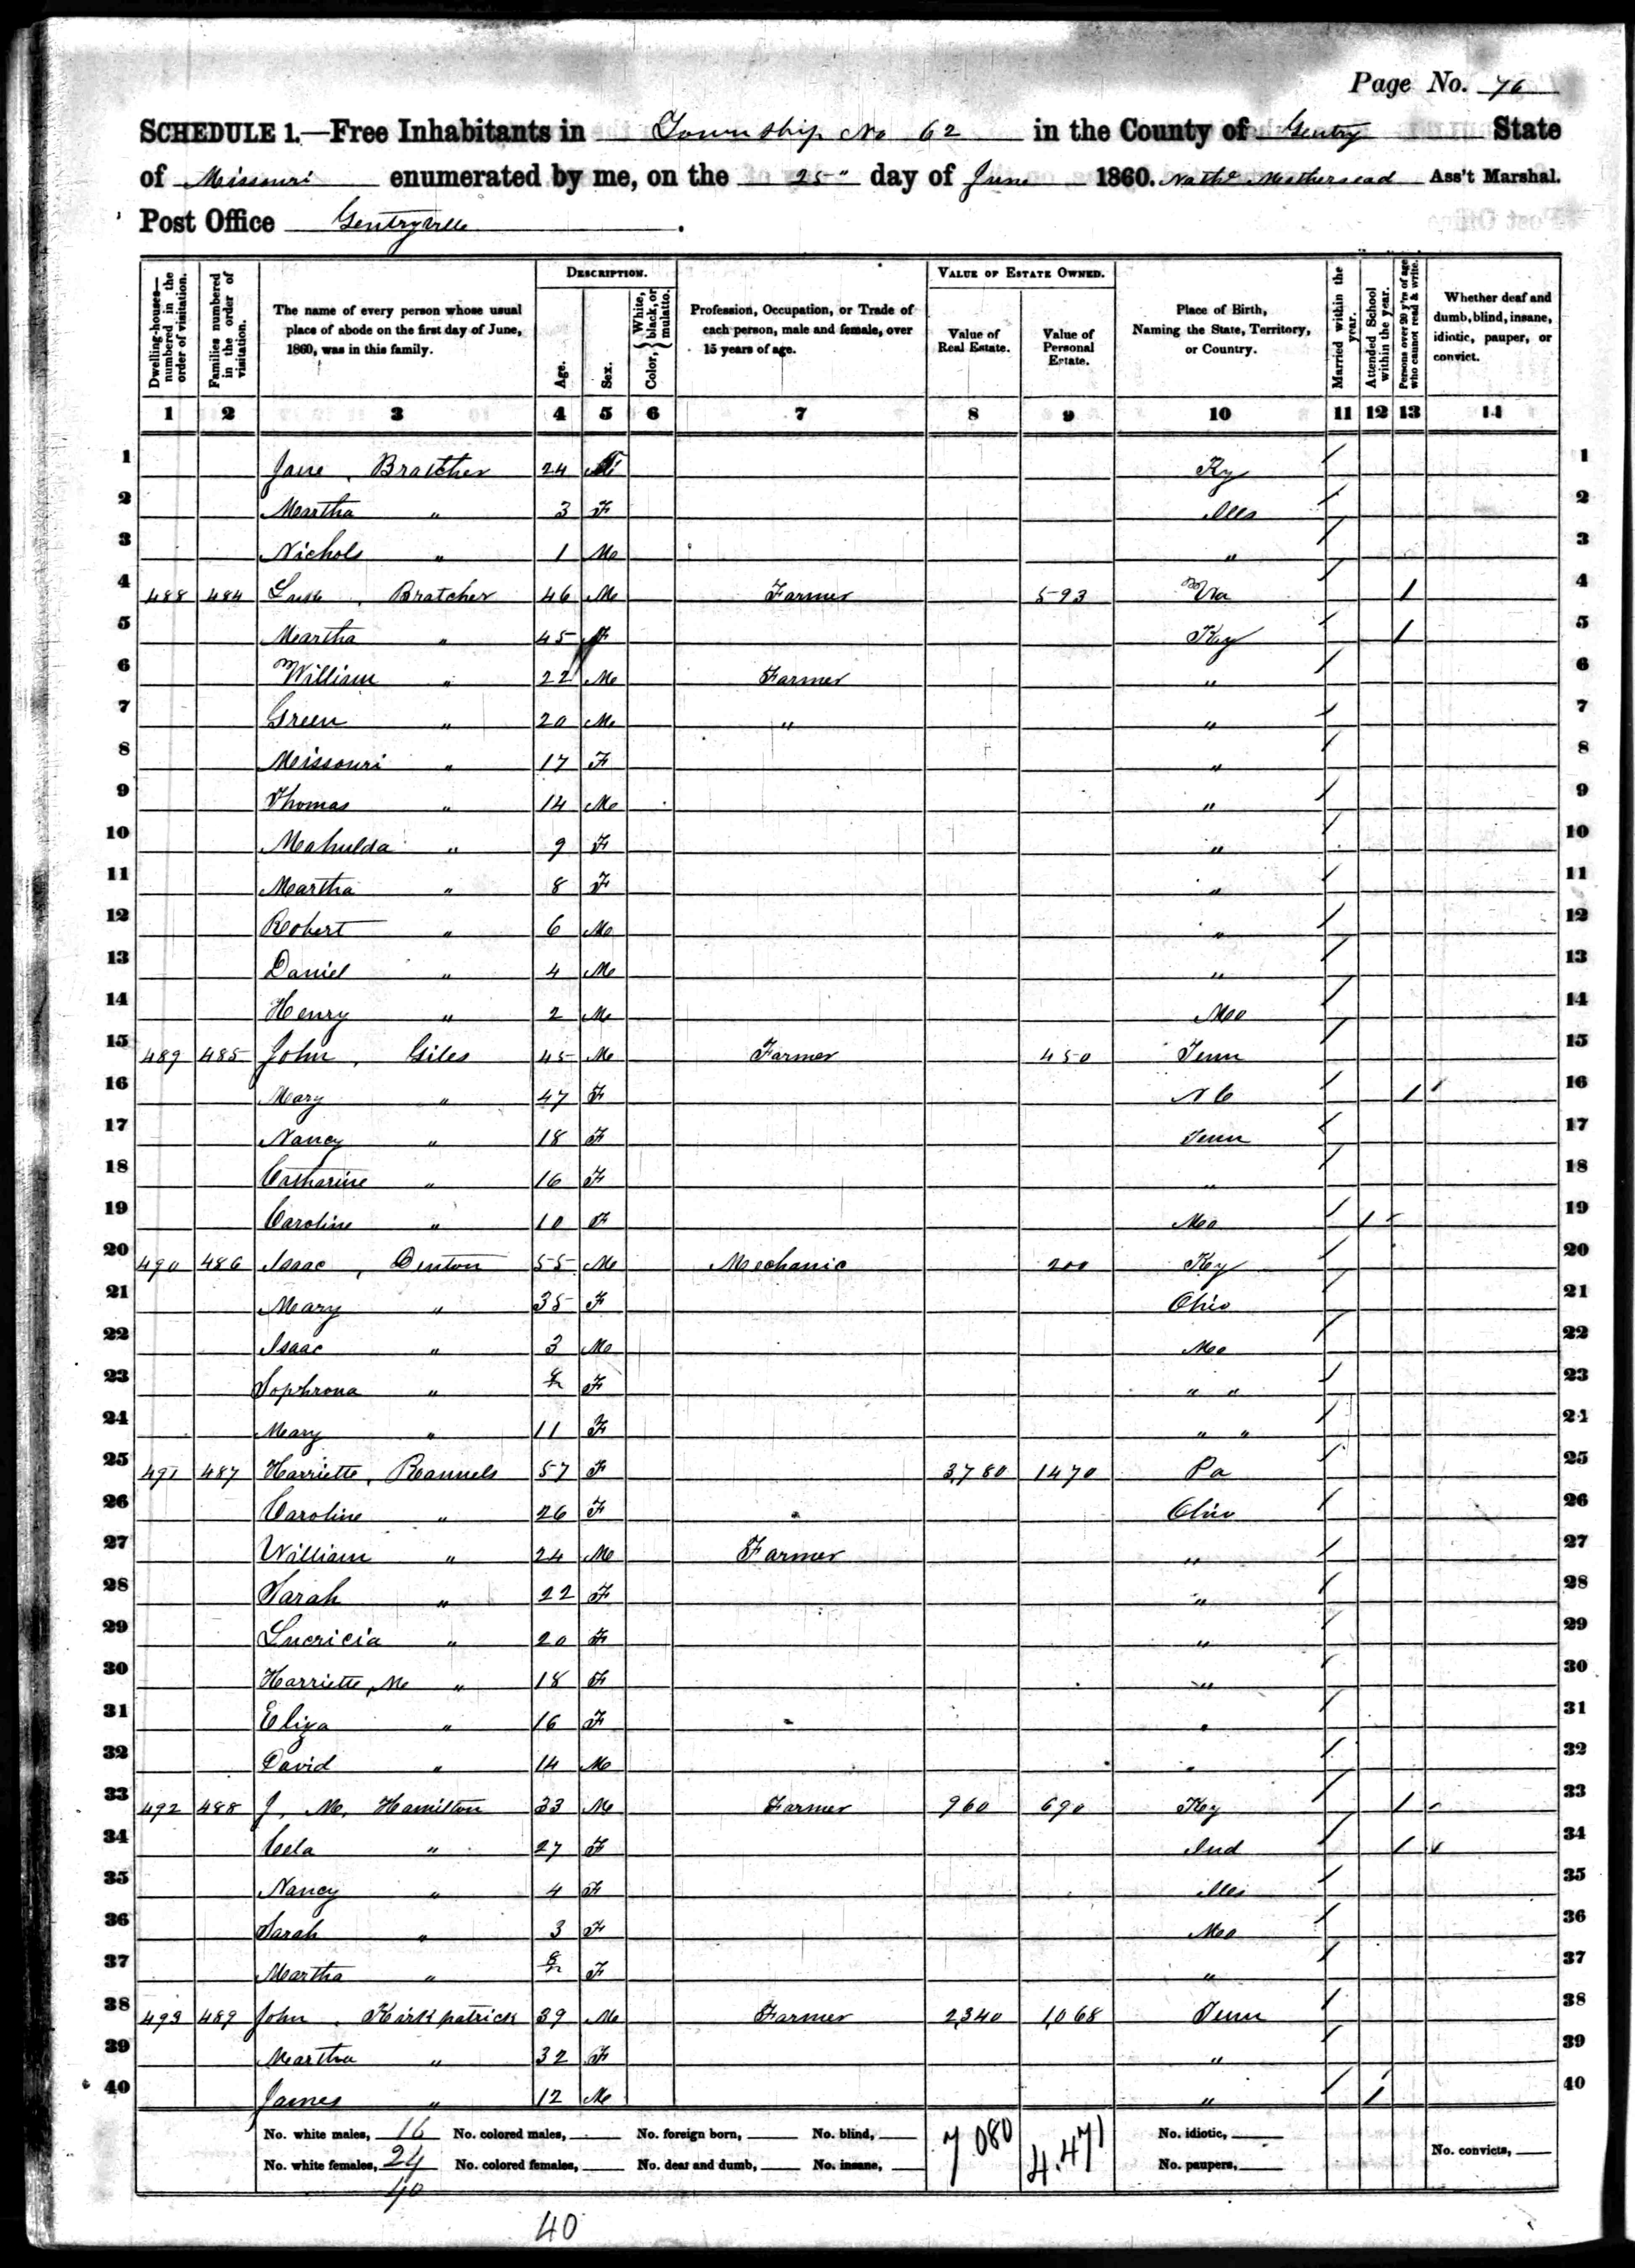 Page No. 76
SCHEDULE 1.—Free Inhabitants in Township No 62 in the County of Gentry State
of Missouri enumerated by me, on the 25" day of June 1860. Ass't Marshal.
Post Office Gentryville.
DESCRIPTION. VALUE OF ESTATE OWNED.
Dwelling-houses—numbered in the order of visitation. Families numbered in the order of visitation. The name of every person whose usual place of abode on the first day of June, 1860, was in this family. Age. Sex. Color, {White, black, or mulatto. Profession, Occupation, or Trade of each person, male and female, over 15 years of age. Value of Real Estate. Value of Personal Estate. Place of Birth, Naming the State, Territory, or Country. Married within the year. Attended School within the year. Persons over 20 y'rs of age who cannot read & write. Whether deaf and dumb, blind, insane, idiotic, pauper, or convict.
1 2 3 4 5 6 7 8 9 10 11 12 13 14
1 Jane, Bratcher 24 F Ky / 1
2 Martha " 3 F Ills / 2
3 Nichols " 1 M " / 3
4 488 484 Bratcher 46 M Farmer 593 Va / 1 4
5 Martha " 45 F Ky / 1 5
6 William " 22 M Farmer " / 6
7 Green " 20 M " " / 7
8 Missouri " 17 F " / 8
9 Thomas " 14 M " / 9
10 Mahulda " 9 F " / 10
11 Martha " 8 F " / 11
12 Robert " 6 M " / 12
13 Daniel " 4 M " / 13
14 Henry " 2 M Mo / 14
15 489 485 John, Giles 45 M Farmer 450 Tenn / 15
16 Mary " 47 F N C / 1 16
17 Nancy " 18 F Tenn / 17
18 Catharine " 16 F " / 18
19 Caroline " 10 F Mo / 1 19
20 490 486 Isaac, Denton 55 M Mechanic 200 Ky / 20
21 Mary " 35 F Ohio / 21
22 Isaac " 3 M Mo / 22
23 Sophrona " F " " / 23
24 Mary " 11 F " " / 24
25 491 487 Harriette, Rannels 57 F 3,780 1470 Pa / 25
26 Caroline " 26 F Ohio / 26
27 William " 24 M Farmer " / 27
28 Sarah " 22 F " / 28
29 Lucricia " 20 F " / 29
30 Harriette, M " 18 F " / 30
31 Eliza " 16 F " / 31
32 David " 14 M " / 32
33 492 488 J, M, Hamilton 33 M Farmer 960 690 Ky / 1 33
34 Cela " 27 F Ind / 1 34
35 Nancy " 4 F Ills / 35
36 Sarah " 3 F Mo / 36
37 Martha " F " / 37
38 493 489 John, Kirkpatrick 39 M Farmer 2,340 1,068 Tenn / 38
39 Martha " 32 F " / 39
40 James " 12 M " / 1 40
No. white males, 16 No. colored males, No. foreign born, No. blind, 7080 4.471 No. idiotic,
No. white females, 24 No. colored females, No. deaf and dumb, No. insane, No. paupers, No. convicts,
40
40